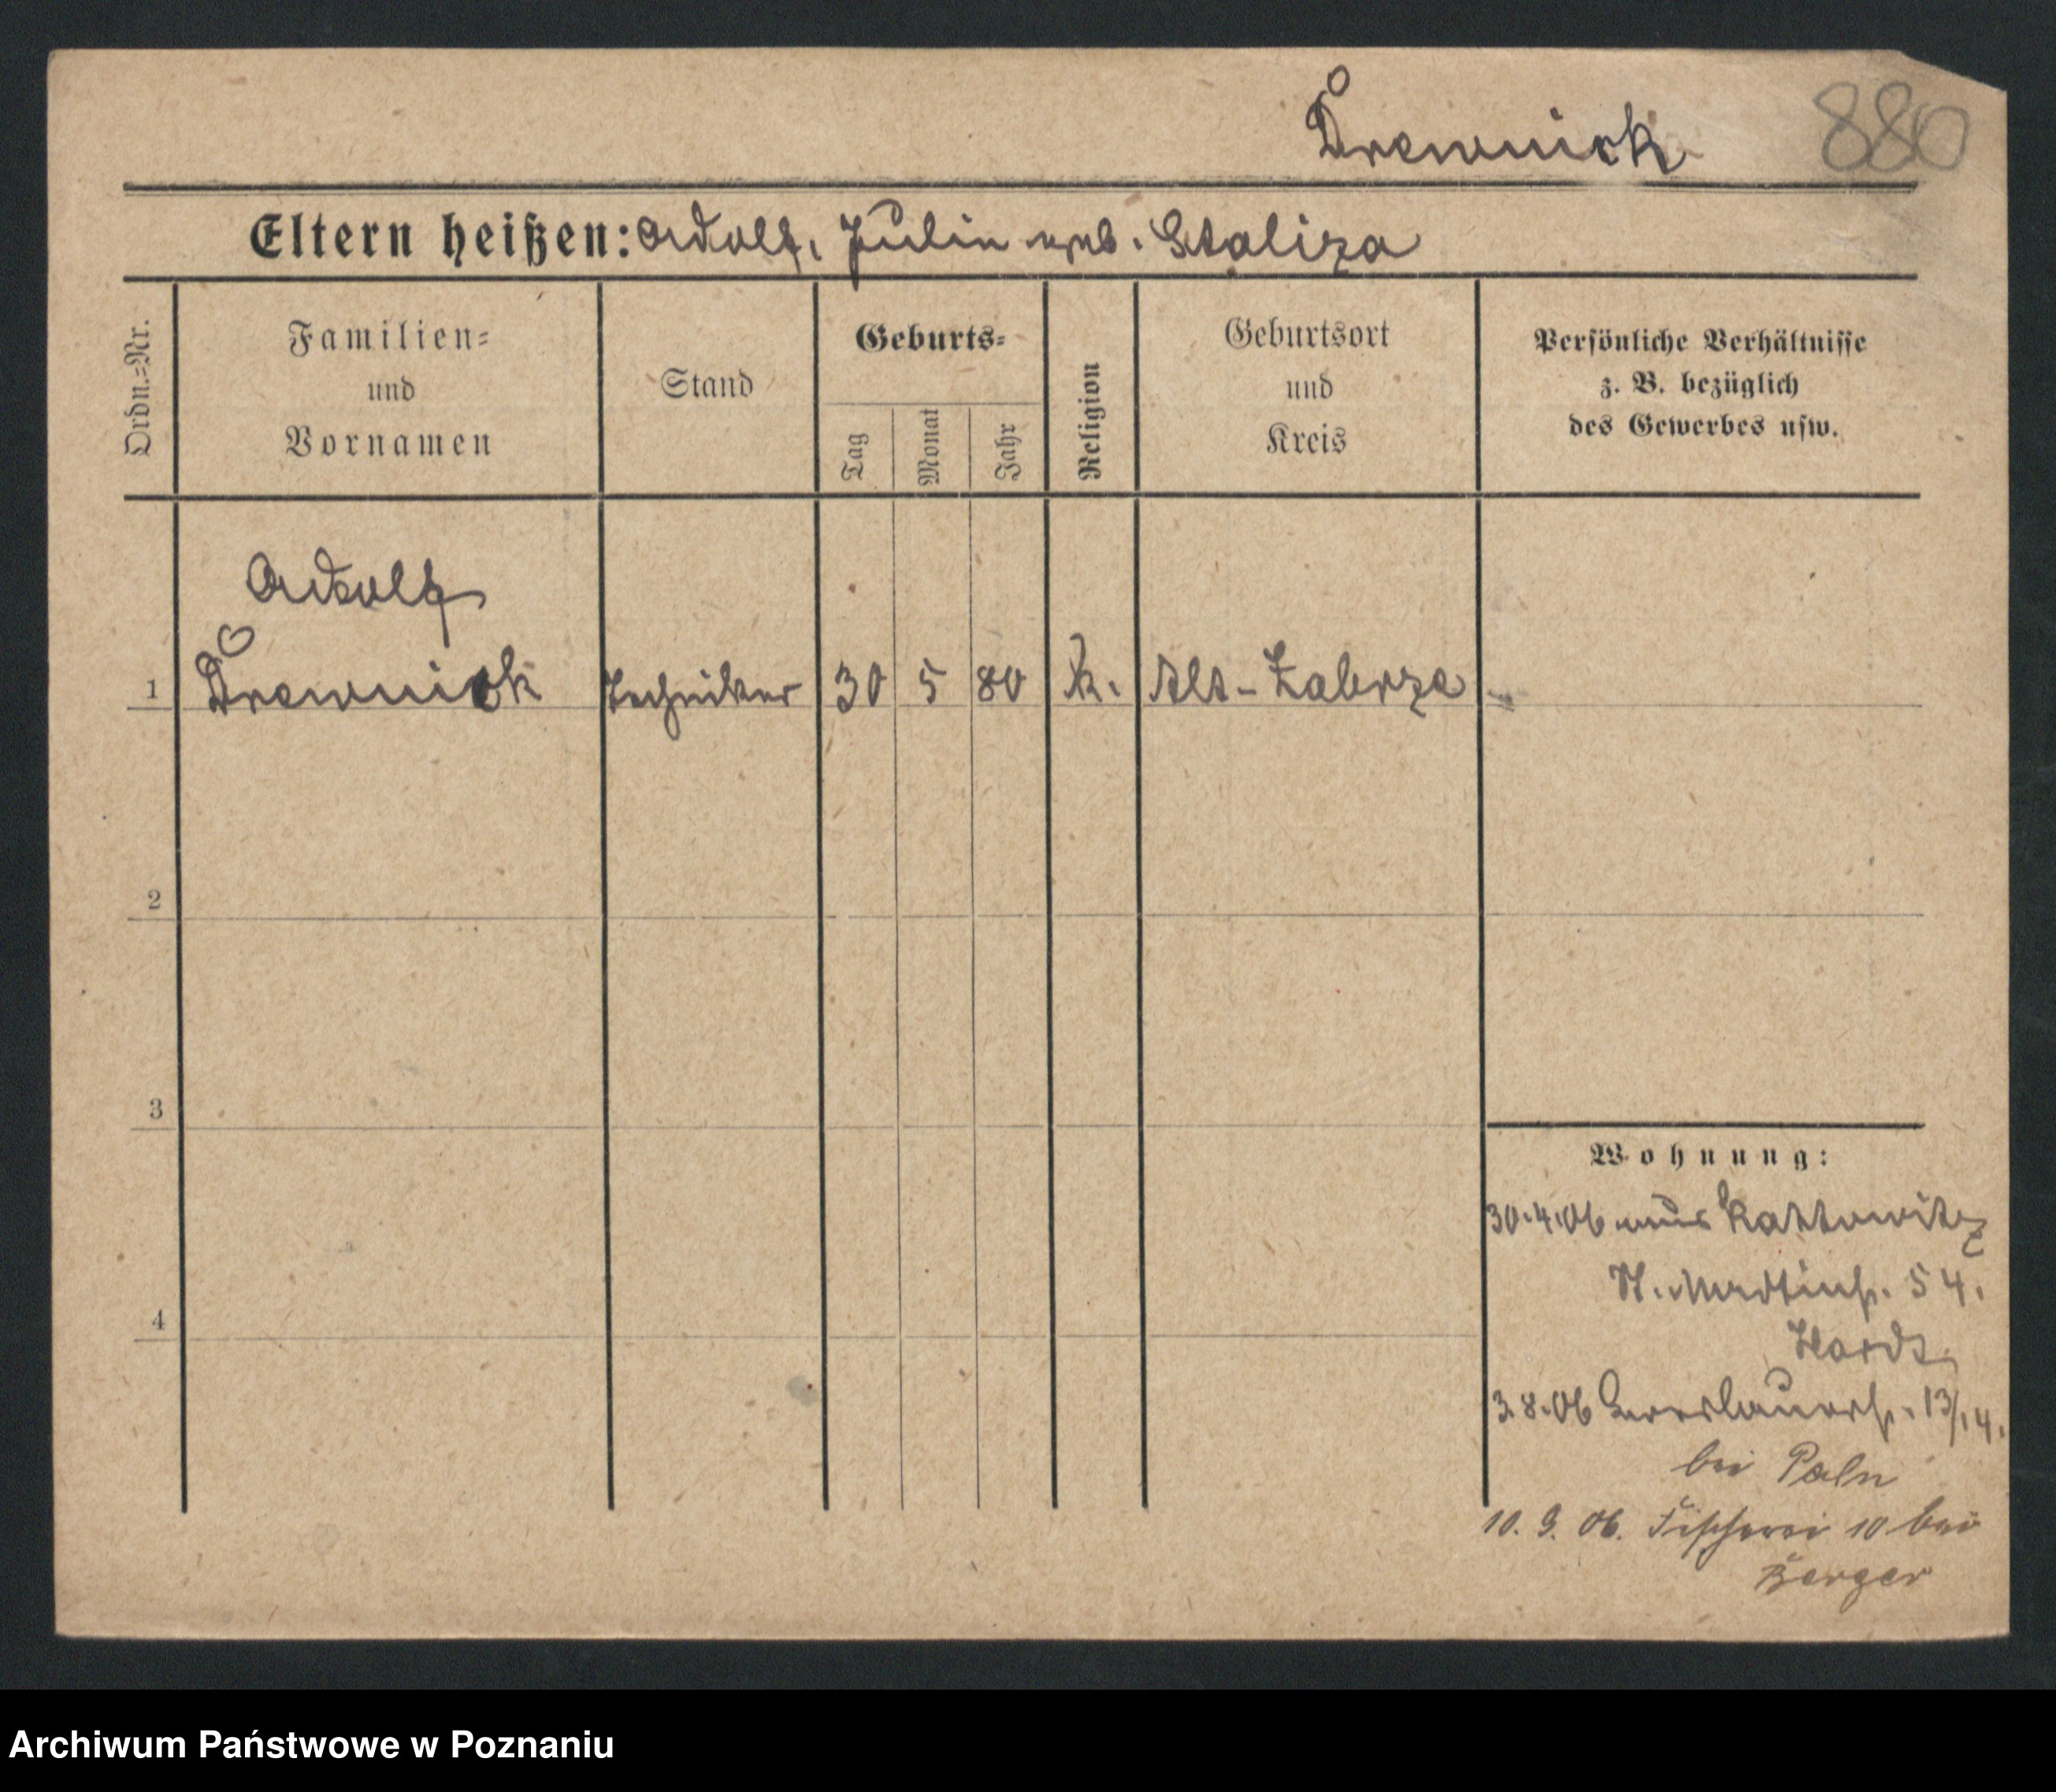 Drewnick 880
Eltern heißen: Adolf, Julie geb. Staliza
Ordn.=Nr.
Familien=
und
Vornamen
Stand
Geburts=
Tag
Monat
Jahr
Religion
Geburtsort
und
Kreis
Persönliche Verhältnisse
z. B. bezüglich
des Gewerbes usw.
Adolf
1 Drewnick Techniker 30 5 80 k. Alt-Zabrze -
2
3
4
Wohnung:
30.4.06 aus Kattowitz
St. Martinstr. 54.
3.8.06 Breslauerstr. 13/14.
bei
10. 9. 06. Fischerei 10 bei
Berger
Archiwum Państwowe w Poznaniu